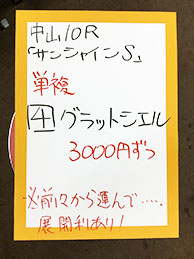 中山10R
「サンシャインS」
単複
4 グラットシエル
3000円ずつ
必前々から運んで……
展開利あり!